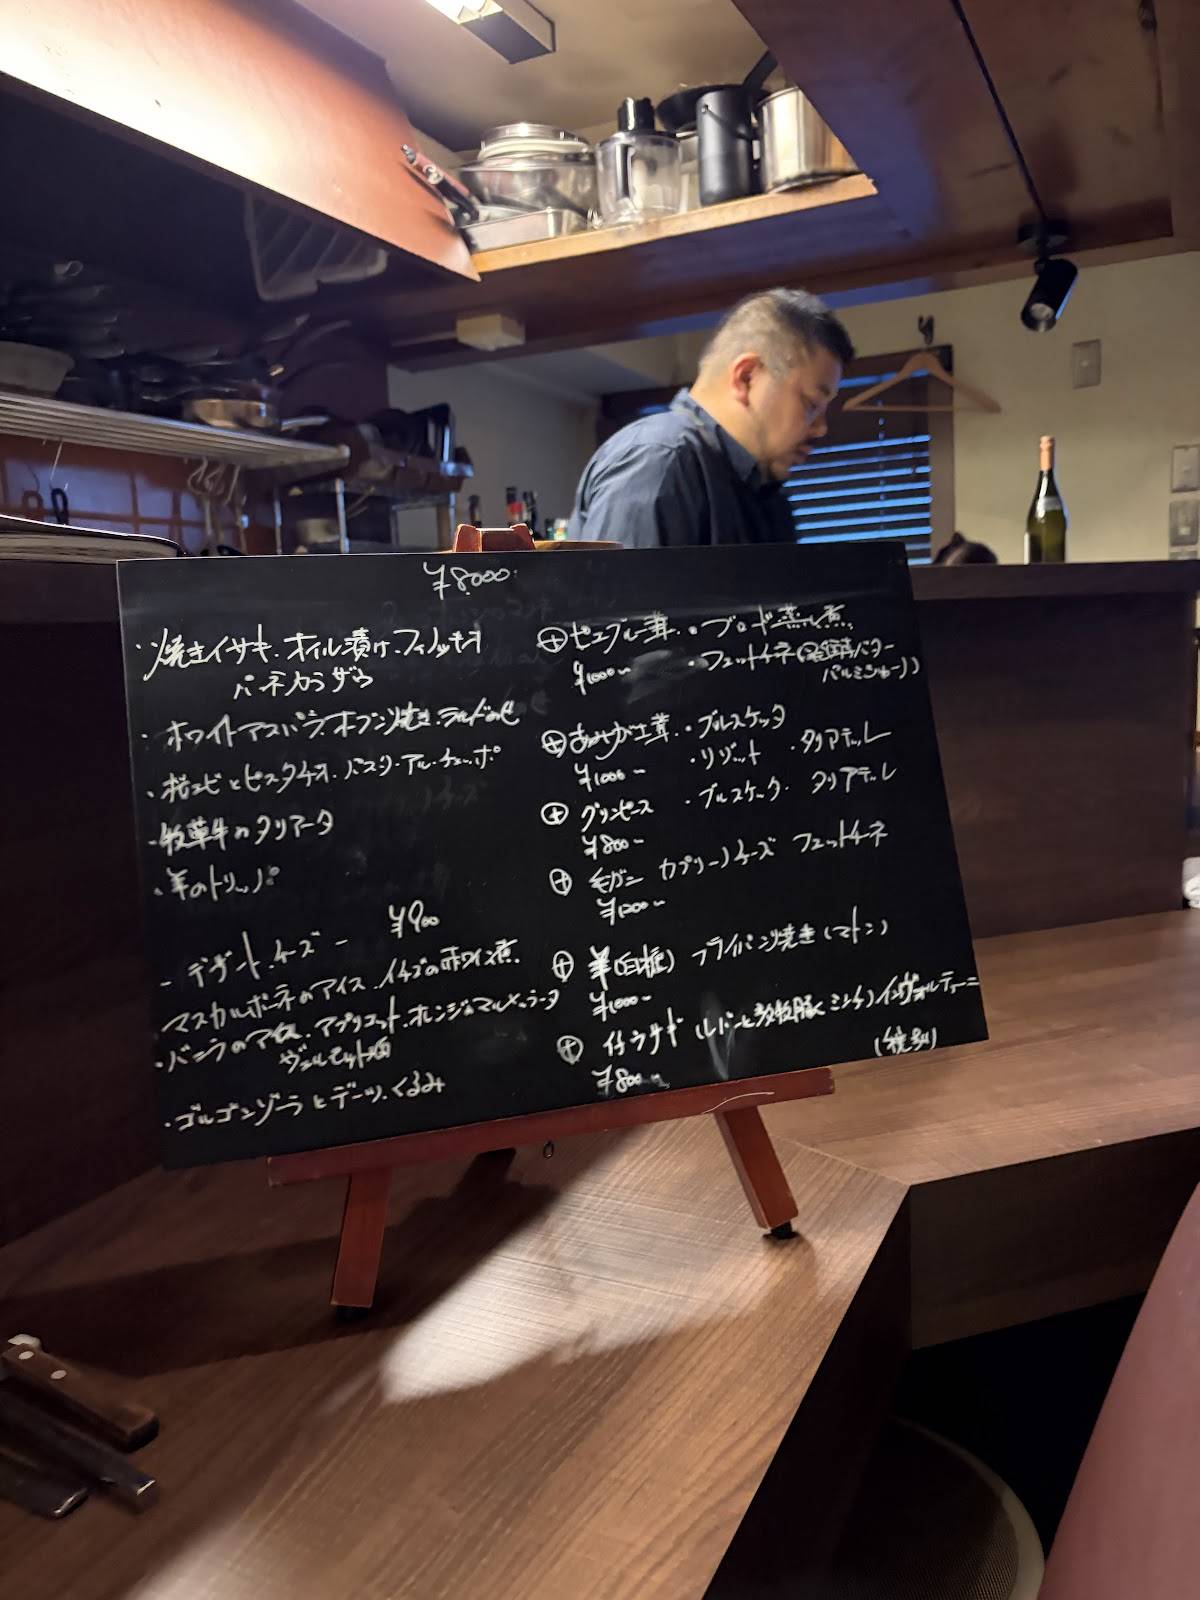 ¥8.000
・焼きイサキ.オイル漬け.フィノッキオ
パーネカラザウ
・ホワイトアスパラ.オーブン焼き.ラルドのせ
・桜エビとピスタチオ.パスタ.アル.チェッポ
・牧草牛のタリアータ
・羊のトリッパ
- デザート.チーズ - ¥900
マスカルポーネのアイス.イチゴの赤ワイン煮.
・バニラのアイス.アプリコット.オレンジのマルメラータ
・ゴルゴンゾーラとデーツ.くるみ
⊕ピエブルー茸.・ブロード蒸し煮.
¥1000〜 ・フェットチネ(バター
パルミジャーノ)
⊕あみがさ茸.・ブルスケッタ
¥1000〜 ・リゾット ・タリアテッレ
⊕グリンピース ・ブルスケッタ. タリアテッレ
¥800〜
⊕毛ガニ カプリーノチーズ フェットチーネ
¥1200〜
⊕羊(白糠) フライパン焼き(マトン)
¥1000〜
⊕仔ウサギ(レバーと放牧豚ミンチ)インヴォルティーニ
¥800〜 (税別)